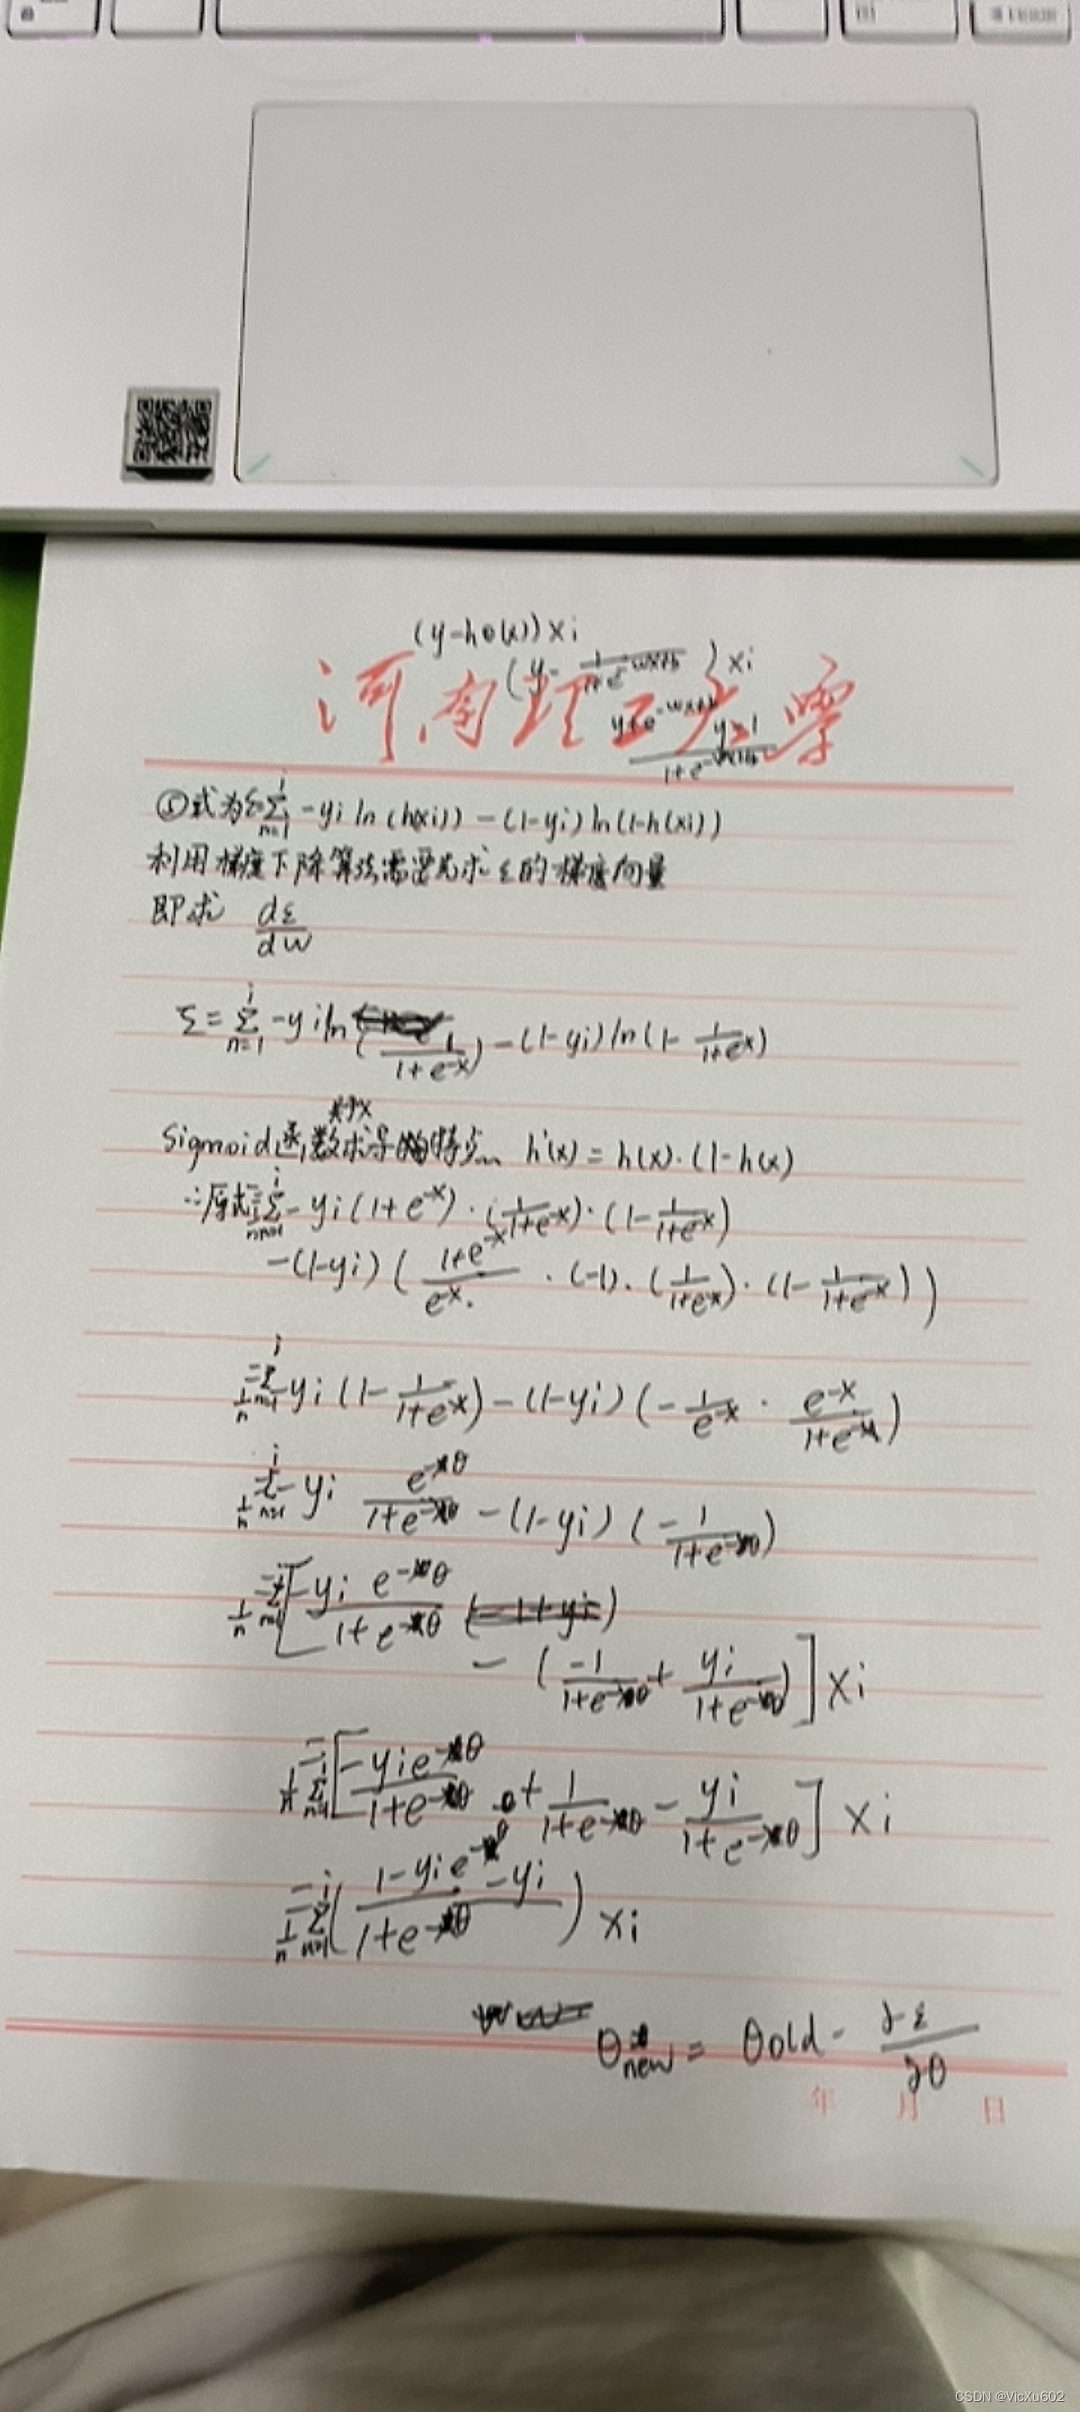 (y-hθ(x))xi
(y- 1/(1+e^-wx+b) )xi
河南理工大学
⑤式为Σ=Σ_{n=1}^{i} -yi ln(h(xi)) -(1-yi)ln(1-h(xi))
利用梯度下降算法需要先求ε的梯度向量
即求 dε/dw
Σ= Σ_{n=1}^{i} -yi ln(1/(1+e^-x)) -(1-yi)ln(1- 1/(1+e^-x))
关于x
Sigmoid函数求导的特点 h'(x) = h(x)·(1-h(x)
∴原式=Σ_{n=1}^{i} -yi(1+e^-x)·(1/(1+e^-x))·(1- 1/(1+e^-x))
-(1-yi)( (1+e^-x)/e^x ·(-1)·(1/(1+e^-x))·(1- 1/(1+e^-x)))
= 1/n Σ_{n=1}^{i} -yi(1- 1/(1+e^-x)) -(1-yi)(- 1/e^-x · e^-x/(1+e^-x))
1/n Σ_{n=1}^{i} -yi e^-xθ/(1+e^-xθ) -(1-yi)( -1/(1+e^-xθ))
= 1/n Σ_{n=1}^{i} [ -yi e^-xθ/(1+e^-xθ)
- ( -1/(1+e^-xθ) + yi/(1+e^-xθ)) ] xi
= 1/n Σ_{n=1}^{i} [ -yie^-xθ/(1+e^-xθ) + 1/(1+e^-xθ) - yi/(1+e^-xθ) ] xi
= 1/n Σ_{n=1}^{i} ( (1-yie^-xθ -yi)/(1+e^-xθ) ) xi
θnew = θold - ∂ε/∂θ
年 月 日
CSDN @VicXu602